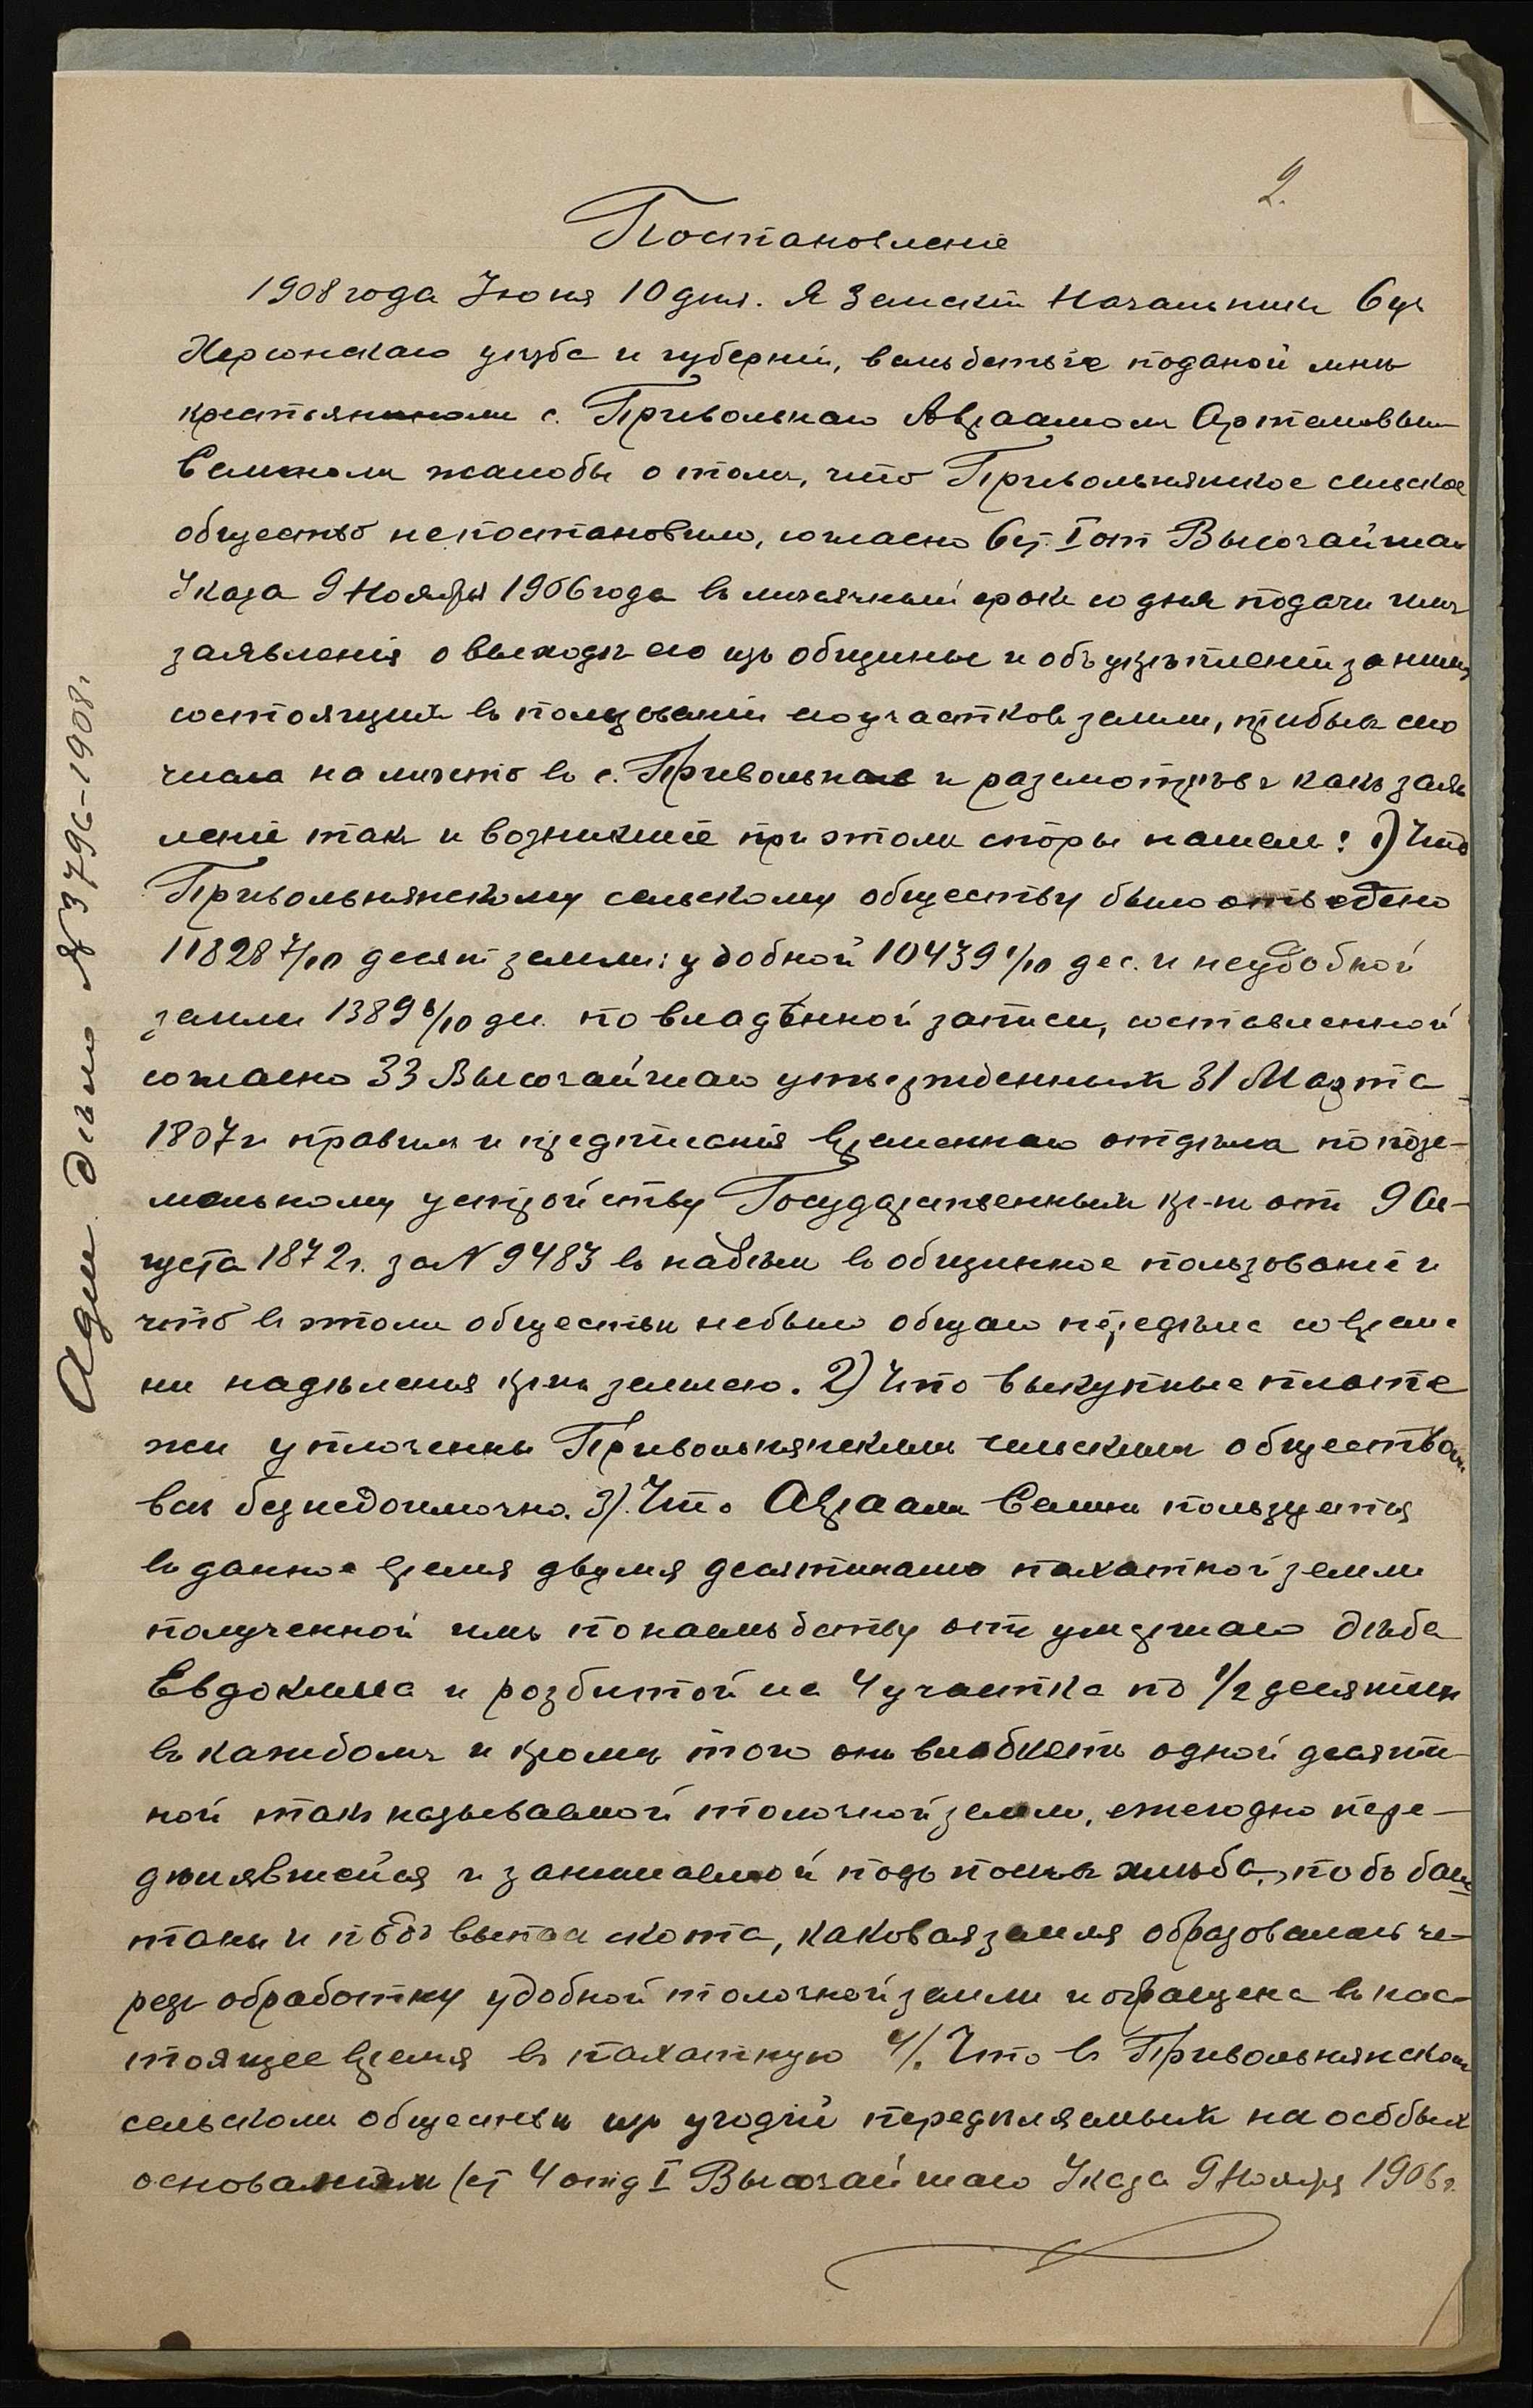 2.
Постановленіе
1908 года Іюня 10 дня. Я Земскій Начальникъ 6 уч
Херсонскаго уѣзда и губерніи, вслѣдствіе поданой мнѣ
крестьяниномъ с. Привольнаго Авраамомъ Артемовымъ
жалобы о томъ, что Привольнянское сельское
общество непостановило, согласно 6 ст. I отд Высочайшаго
Указа 9 Ноября 1906 года въ мѣсячный срокъ со дня подачи имъ
заявленія о выходѣ его изъ общины и объ укрѣпленіи за нимъ
состоящихъ въ пользованіи его участковъ земли, прибылъ сего
числа на мѣсто въ с. Привольное и разсмотрѣвъ какъ заяв
леніе такъ и возникшіе при этомъ споры нашелъ: 1) Что
Привольнянскому сельскому обществу было отведено
11828 7/10 десят земли: удобной 10439 1/10 дес. и неудобной
земли 1389 6/10 дес. по владѣнной записи, составленной
согласно 33 Высочайшаго утвержденныхъ 31 Марта
1867 г правилъ и предписанія Временнаго отдѣла по позе-
мельному устройству Государственныхъ кр-нъ отъ 9 Ав-
густа 1872 г. за № 9483 въ надѣлъ въ общинное пользованіе и
что въ этомъ обществѣ небыло общаго передѣла со време
ни надѣленія кр-нъ землею. 2) Что выкупные плате
жи уплоченны Привольнянскимъ сельскимъ обществомъ
всѣ безнедоимочно. 3). Что Авраамъ пользуется
въ данное время двумя десятинами пахатной земли
полученной имъ по наслѣдству отъ умершаго дѣда
Евдокима и розбитой на 4 участка по 1/2 десятин
въ каждомъ и кромѣ того онъ владѣетъ одной десяти-
ной такъ называемой толочной земли, ежегодно пере-
дѣлявшейся и занимаемой подъ посѣвъ хлѣба, подъ баш
таны и подъ выпасъ скота, каковая земля образовалась че-
резъ обработку удобной толочной земли и обращена въ нас-
тоящее время въ пахатную 4). Что въ Привольнянскомъ
сельскомъ обществѣ угодій передѣляемыхъ на особыхъ
основаніяхъ (ст 4 отд I Высочайшаго Указа 9 Ноября 1906 г.
Адм. дѣло № 3796-1908 г.